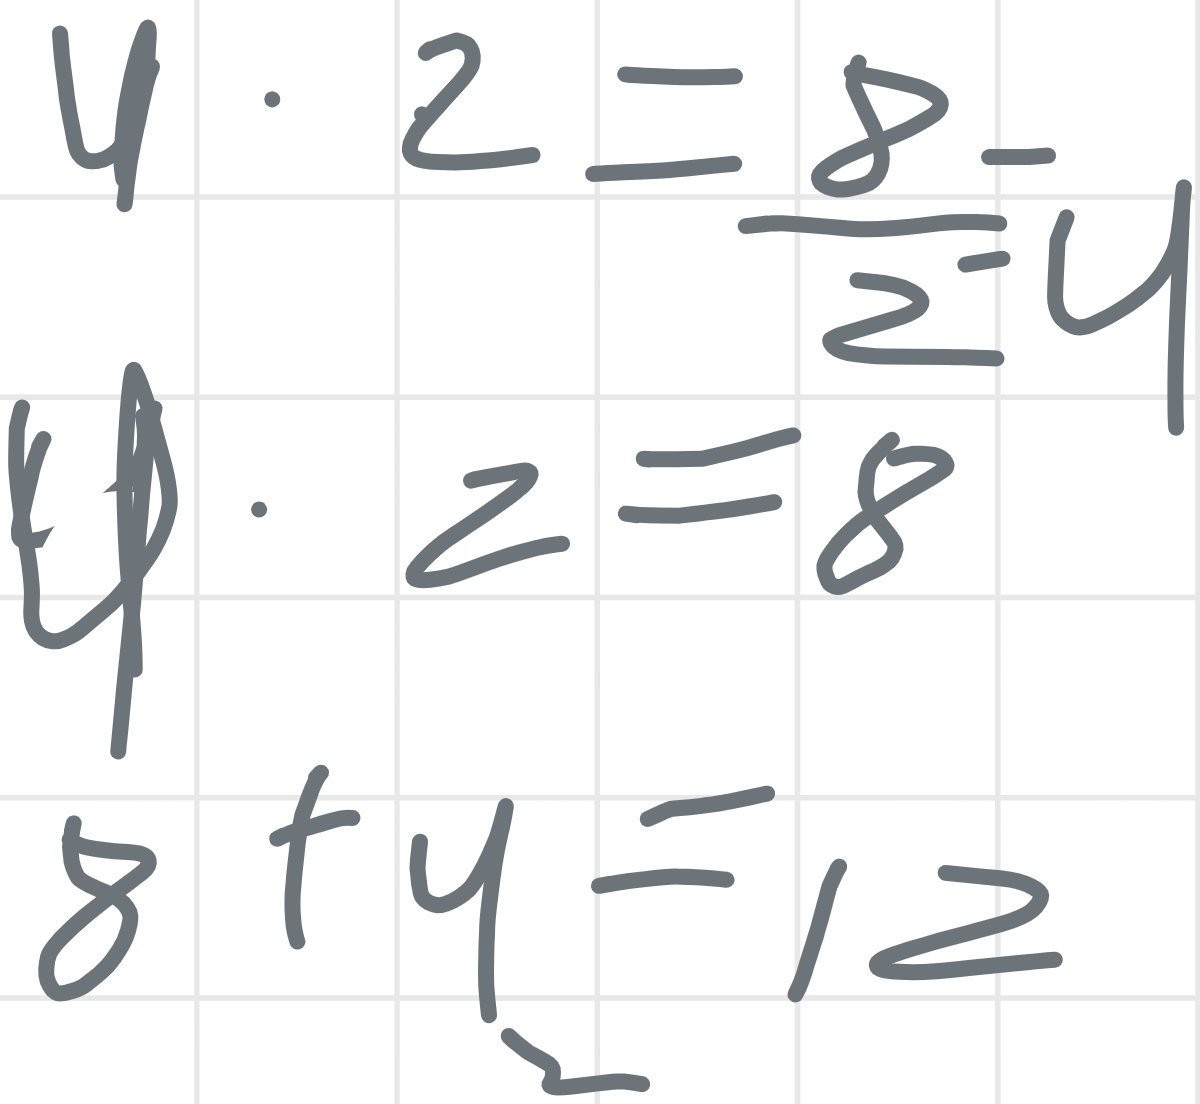 4 · 2 = 8 -
2 - 4
4 · 2 = 8
8 + 4 = 12